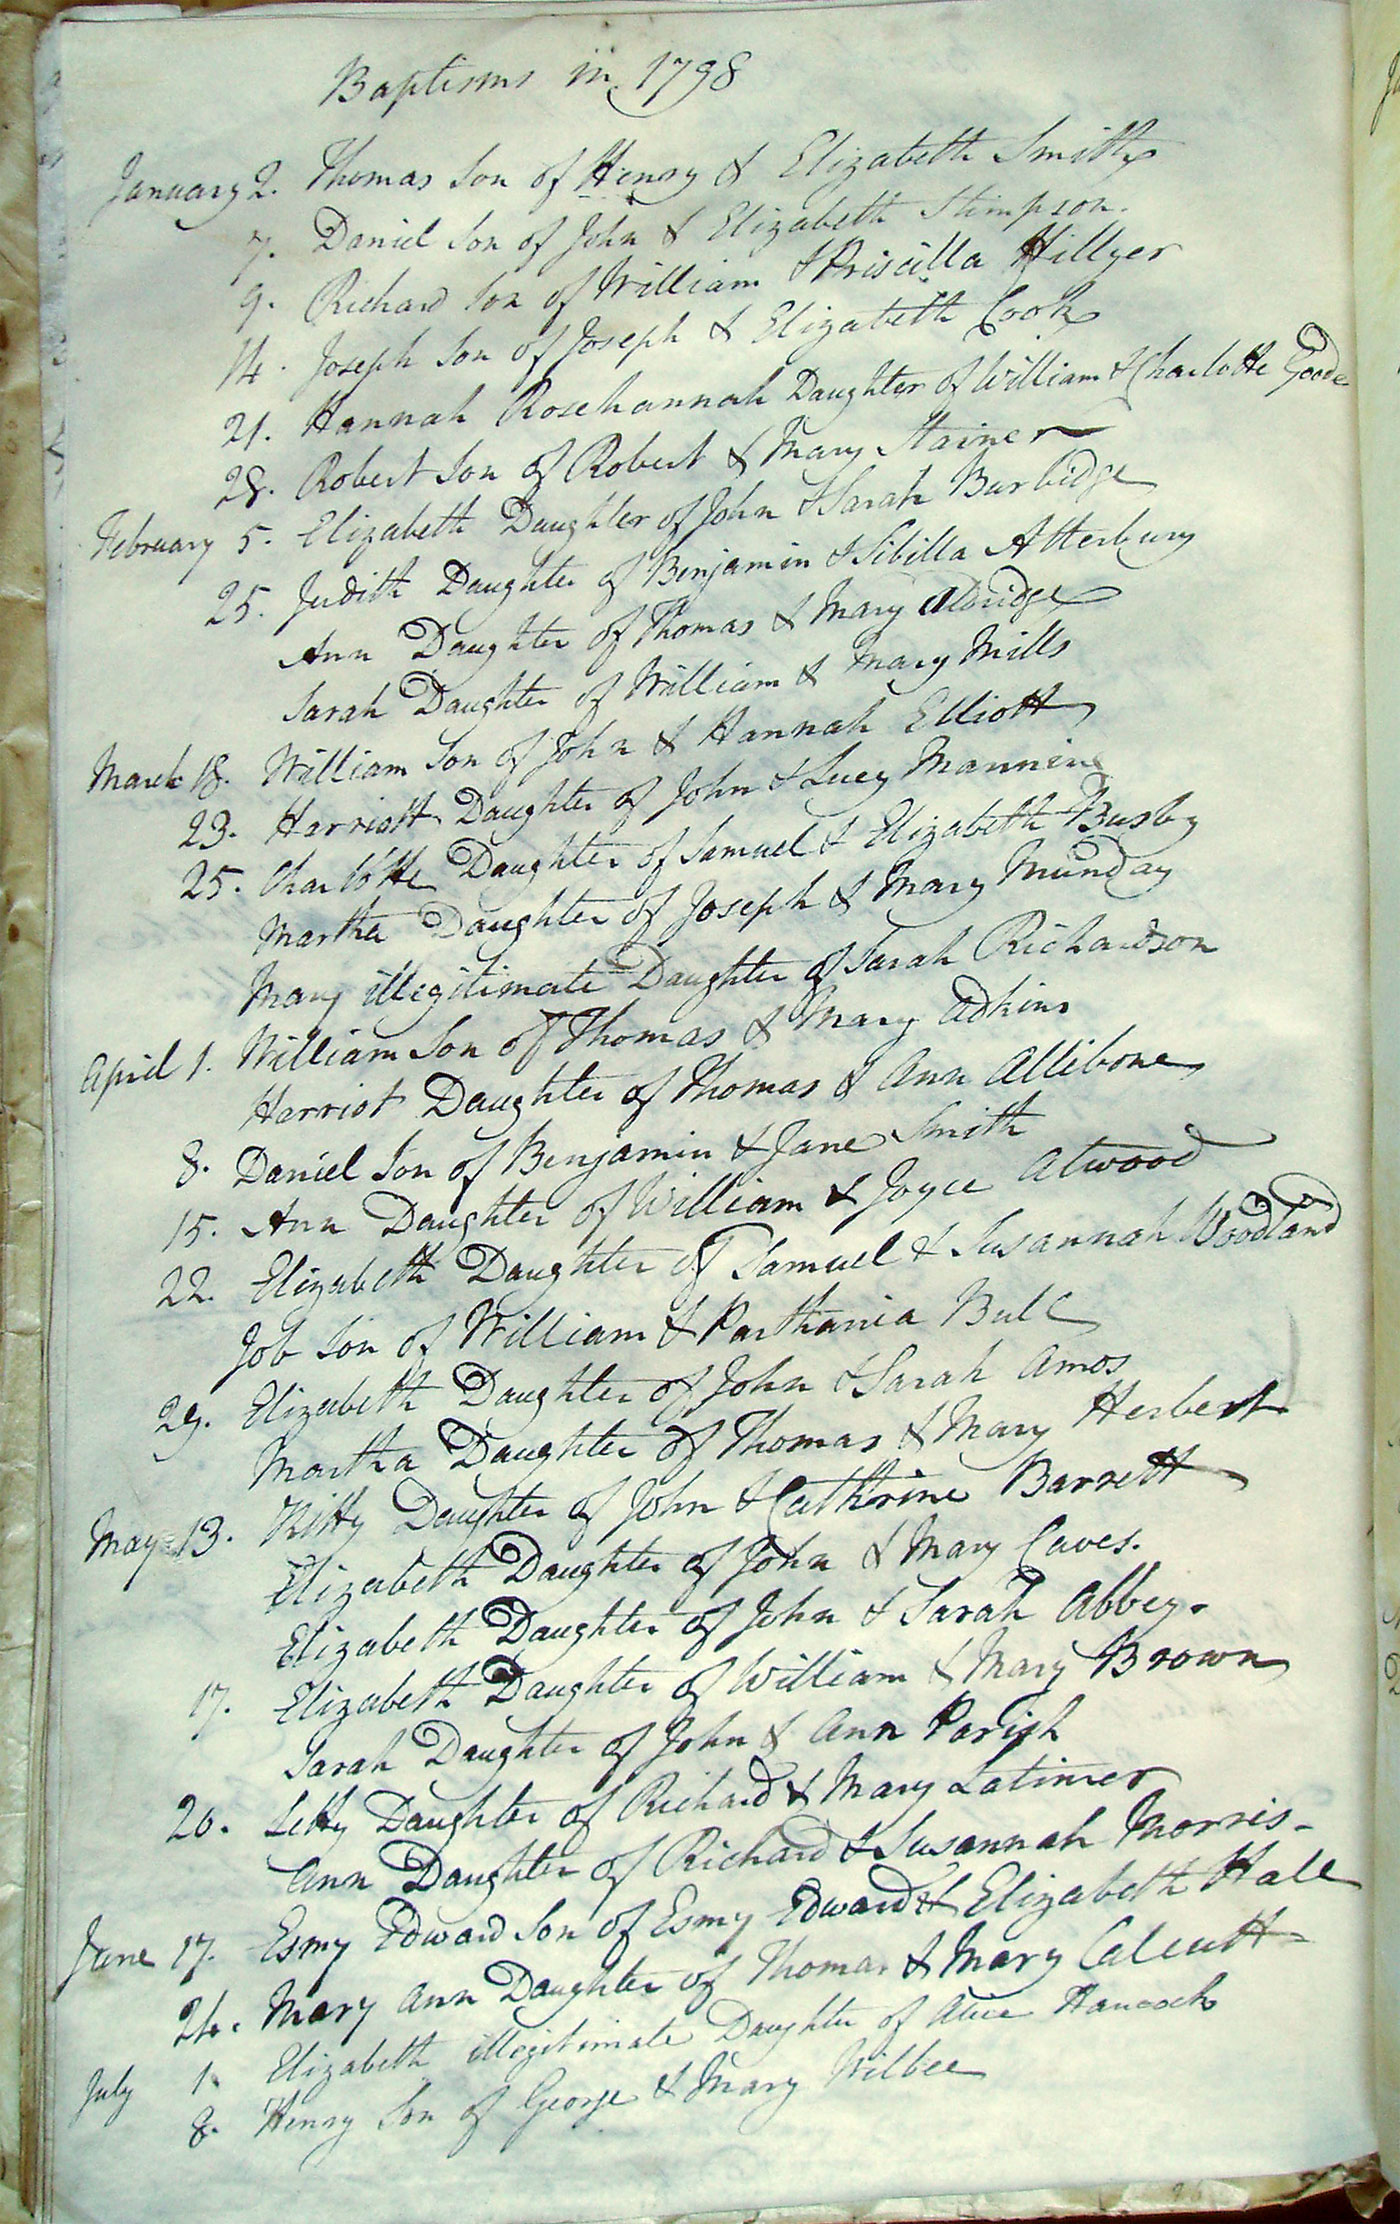 Baptisms in 1798
January 2. Thomas Son of Henry & Elizabeth Smith
7. Daniel Son of John & Elizabeth Stimpson.
9. Richard Son of William & Priscilla Hillyer
14. Joseph Son of Joseph & Elizabeth Cook
21. Hannah Rosehannah Daughter of William & Charlotte Goode
28. Robert Son of Robert & Mary Stainer
February 5. Elizabeth Daughter of John & Sarah Burbidge
25. Judith Daughter of Benjamin & Sibilla Atterbury
Ann Daughter of Thomas & Mary Aldridge
Sarah Daughter of William & Mary Mills
March 18. William Son of John & Hannah Elliott
23. Harriott Daughter of John & Lucy Mannine
25. Charlotte Daughter of Samuel & Elizabeth Busby
Martha Daughter of Joseph & Mary Munday
Mary illegitimate Daughter of Sarah Richardson
April 1. William Son of Thomas & Mary Adkins
Harriot Daughter of Thomas & Ann Allibone
8. Daniel Son of Benjamin & Jane Smith
15. Ann Daughter of William & Joyce Atwood
22. Elizabeth Daughter of Samuel & Susannah Woodland
Job Son of William & Parthania Bull
29. Elizabeth Daughter of John & Sarah Amos
Martha Daughter of Thomas & Mary Herbert
May 13. Kitty Daughter of John & Cathrine Barrett
Elizabeth Daughter of John & Mary Caves.
Elizabeth Daughter of John & Sarah Abbey.
17. Elizabeth Daughter of William & Mary Brown
Sarah Daughter of John & Ann Parish
20. Letty Daughter of Richard & Mary Latimer
Ann Daughter of Richard & Susannah Morris-
June 17. Esmy Edward Son of Esmy Edward & Elizabeth Hall
24. Mary Ann Daughter of Thomas & Mary Calcutt-
July 1. Elizabeth illegitimate Daughter of Alice Hancock
8. Henry Son of George & Mary Wilbee